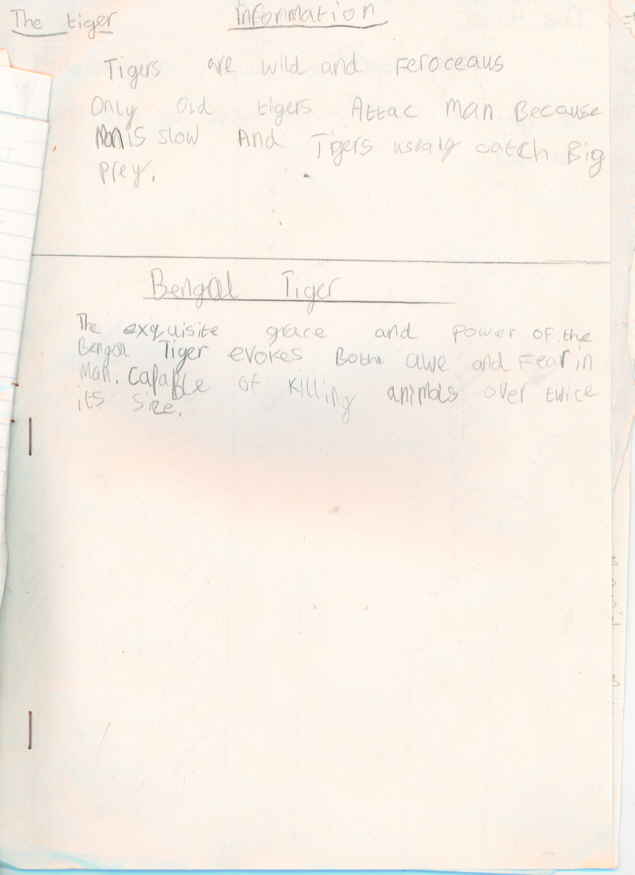 The tiger Information
Tigers are wild and Feroceaus
Only old tigers Attac man Because
Man is slow And Tigers usualy catch Big
prey.
Bengal Tiger
The exquisite grace and power of the
Bengal Tiger evokes Both awe and Fear in
Man. Capable of killing animals over twice
its size.